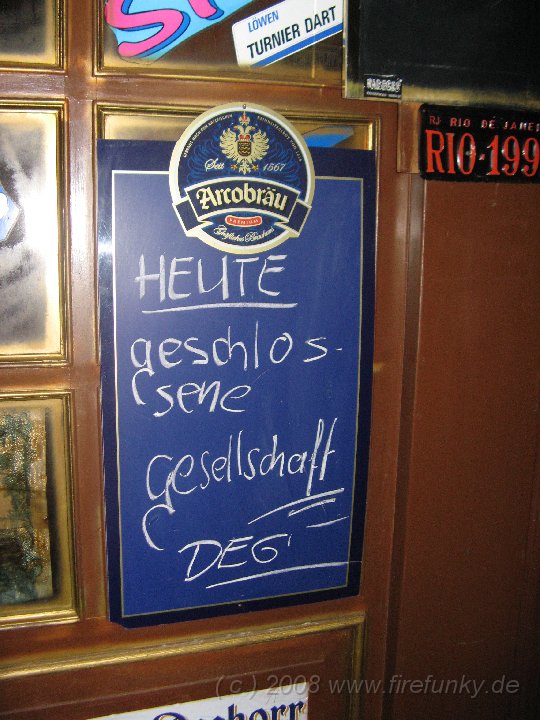 LÖWEN
TURNIER DART
HARDSKY
RJ RIO DE JANEI
RIO-199
Seit 1567
Arcobräu
PREMIUM
HEUTE
geschlos-
sene
Gesellschaft
DEG
(c) 2008 www.firefunky.de